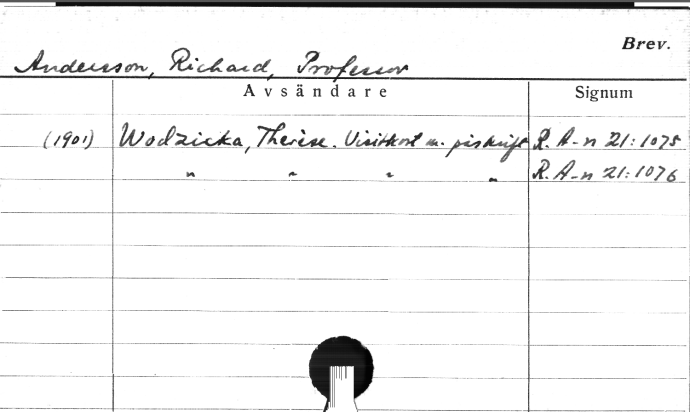 Brev.
Andersson, Richard, Professor
Avsändare Signum
(1901) Wodzicka, Therèse. Visitkort m. påskrift R. A-n 21:1075
" " " " R. A-n 21:1076